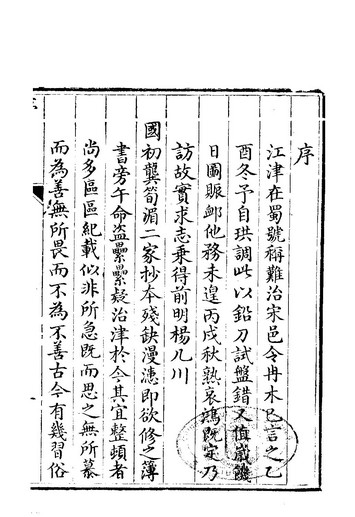 序
江津在蜀號稱難治宋邑令冉木已言之乙
酉冬予自珙調此以鉛刀試盤錯又值歲饑
日圖賑䘏他務未遑丙戌秋熟哀鴻既定乃
訪故實求志乗得前明楊几川
國初龔筍湄二家抄本殘缺漫漶即欲修之薄
書旁午命盗纍纍疑治津於今其宜整頓者
尚多區區紀載似非所急既而思之無所慕
而為善無所畏而不為不善古今有幾習俗